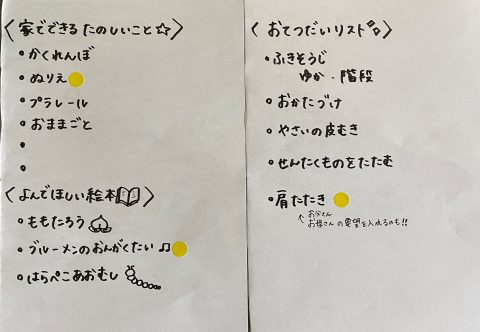 〈家でできるたのしいこと☆〉
・かくれんぼ
・ぬりえ
・プラレール
・おままごと
・
・
〈よんでほしい絵本〉
・ももたろう
・ブルーメンのおんがくたい♫
・はらぺこあおむし
〈おてつだいリスト〉
・ふきそうじ
ゆか・階段
・おかたづけ
・やさいの皮むき
・せんたくものをたたむ
・肩たたき
↑お父さん
お母さんの要望を入れるのも!!